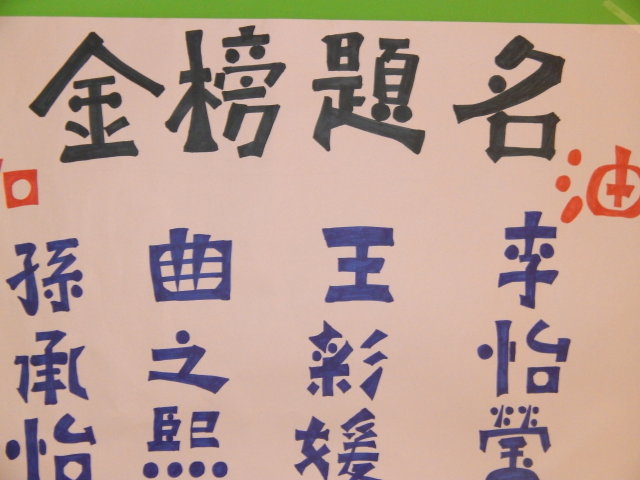 金榜題名
加
油
孫承怡
曲之熙
王彩媛
李怡瑩